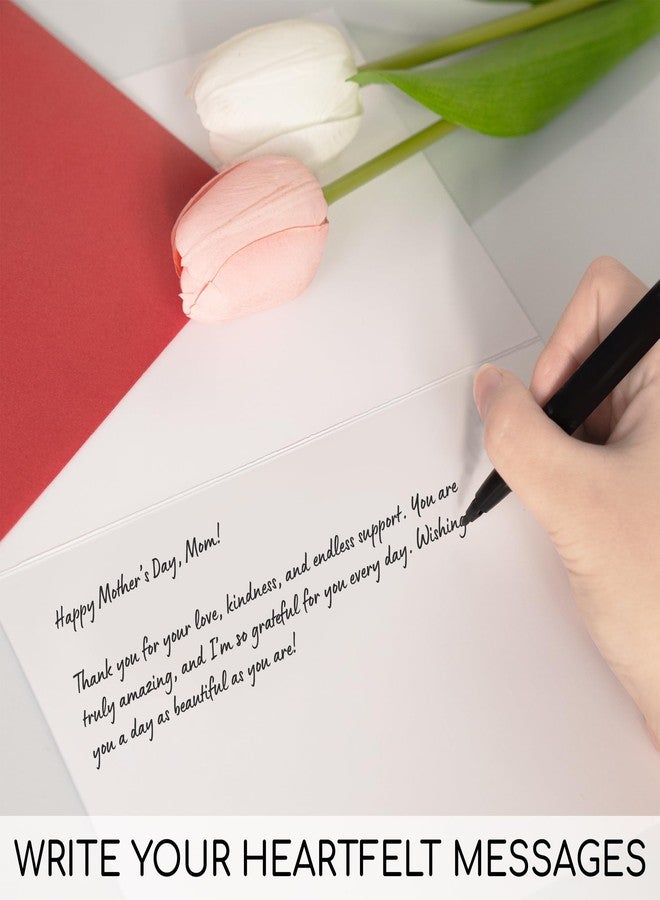 Happy Mother's Day, Mom!
Thank you for your love, kindness, and endless support. You are
truly amazing, and I'm so grateful for you every day. Wishing
you a day as beautiful as you are!
WRITE YOUR HEARTFELT MESSAGES